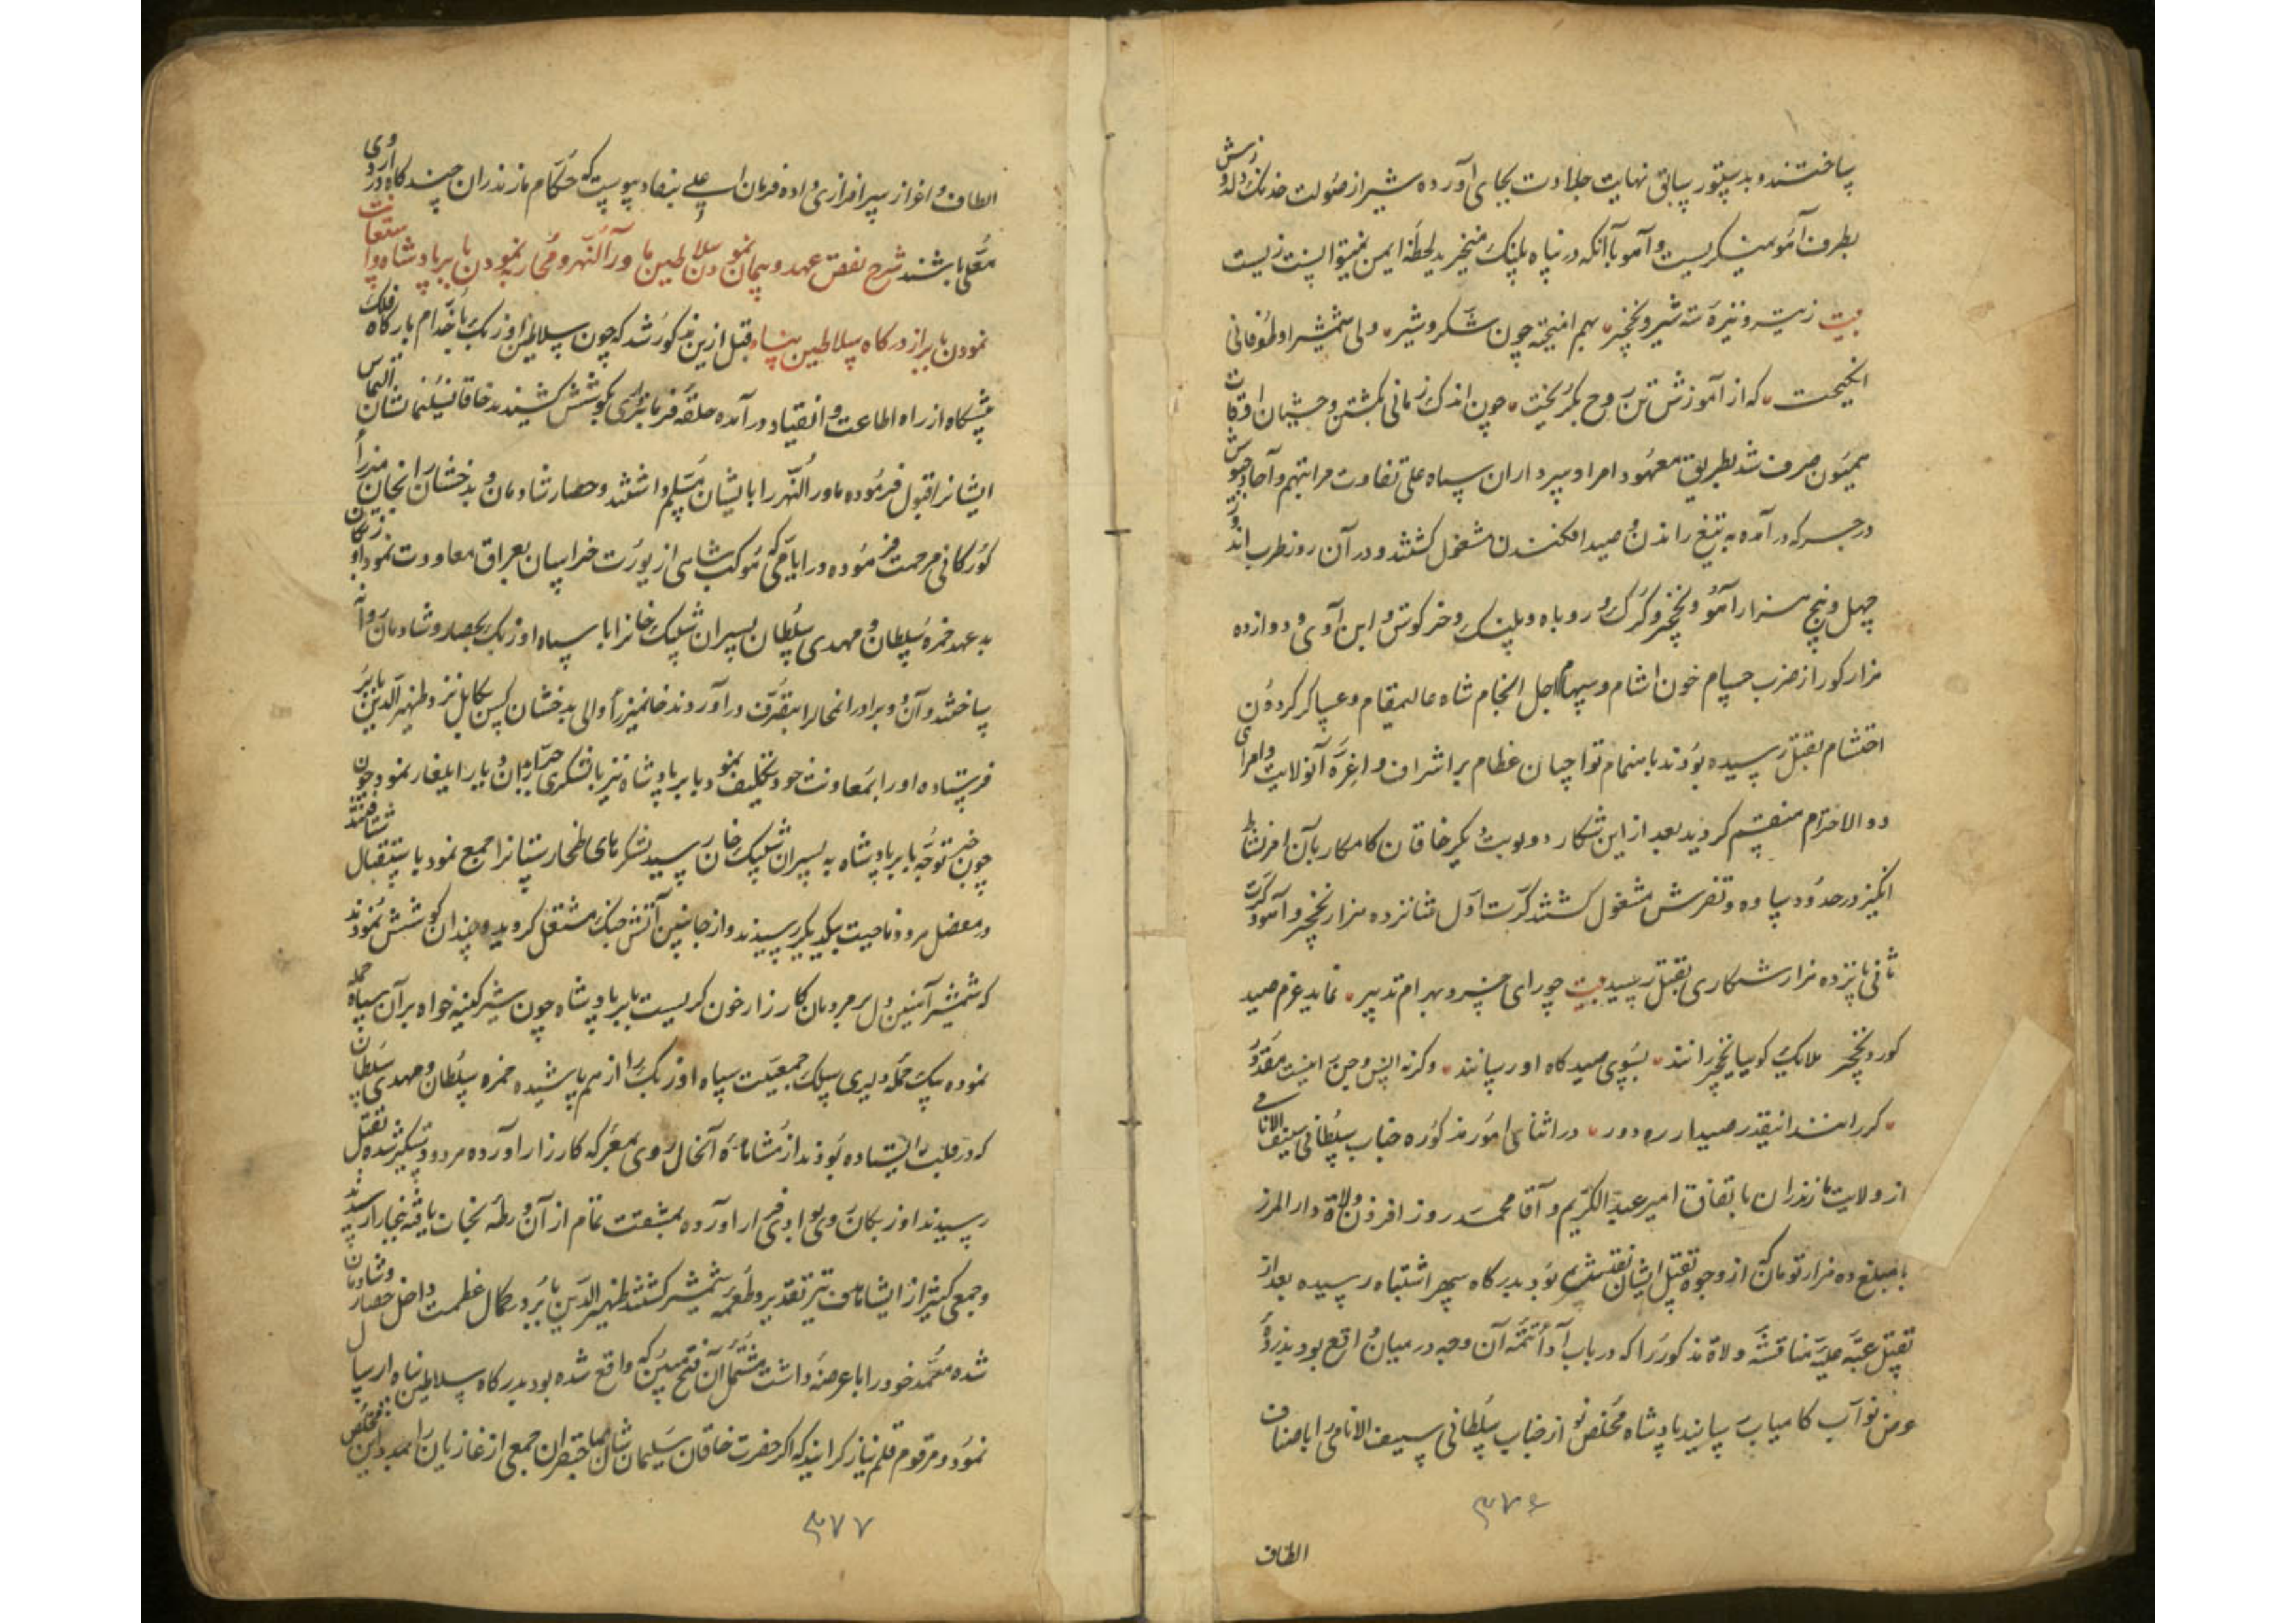 ساختند و بدستور سابق نهایت جلادت بجای آورده شیر از صولت خدنک
بطرف آهو میننکریست و آهو با آنکه در پناه پلنک میخزید لحظهٔ ایمن نمیتوانست زیست
بیت ز تیر و نیزه شیر و نخچیر بهم امیخته چون شکر و شیر ولی شمشیر او طوفانی
انکیخت که از آموزش تن روح بکریخت چون اندک زمانی بکشتن وحشیان اوقات
همیون صرف شد بطریق معهود امرا و سرداران سپاه علی تفاوت مراتبهم و آحاد جیوش
در جرکه در آمده به تیغ راندن و صید افکندن مشغول کشتند و در آن روز طرب اندوز
چهل و پنج هزار آهو و نخچیر و کرک و روباه و پلنک و خرکوش و ابن آوی و دوازده
هزار کور از ضرب حسام خون اشام و سهام اجل انجام شاه عالیمقام و عساکر کردون
احتشام بقتل رسیده بودند باهتمام تواچیان عظام بر اشراف و اعزه آنولایت و امرای
ذو الاحترام منقسم کردید بعد از این شکار دو نوبت دیکر خاقان کامکار بآن امر نشاط
انکیز در حدود ساوه و تفرش مشغول کشتند کرت اول شانزده هزار نخچیر و آهو و کرت
ثانی پانزده هزار شکاری بقتل رسید بیت چو رای خسرو بهرام تدبیر نماید عزم صید
کور و نخچیر ملایک کوییا نخچیر رانند بسوی صیدکاه او رسانند وکرنه انس و جن را نیست مقدور
که رانند اینقدر صید از ره دور در اثنای امور مذکوره جناب سلطانی سیف الانامی
از ولایت مازندران باتفاق امیر عبد الکریم و آقا محمد روز افزون ولاة دار المرز
با مبلغ ده هزار تومان که از وجوه تقبل ایشان بود بدرکاه سپهر اشتباه رسیده بعد از
تقبیل عتبه علیه مناقشه ولاة مذکور را که در باب آداء تتمه آن وجه در میان واقع بود بذروهٔ
عرض نواب کامیاب رسانید پادشاه مخلص نواز جناب سلطانی سیف الانامی را باصناف
الطاف
۳۷۶
الطاف و اعزاز سرافرازی داده فرمان اعلی بنفاد پیوست که حکام مازندران چند کاه در اردوی
معلی باشند شرح نقض عهد و پیمان نمودن سلاطین ماورآء النهر و محاربه نمودن بابر پادشاه و استعانت
نمودن بابر از درکاه سلاطین پناه قبل ازین مذکور شد که چون سلاطین اوزبک با خدام بارکاه فلک
پیشکاه از راه اطاعت و انقیاد در آمده حلقه فرمانبری بکوشش کشیدند خاقان سلیمان نشان التماس
ایشانرا قبول فرموده ماوراء النهر را بایشان مسلم داشتند و حصار شادمان و بدخشان را بخان میرزا
کورکانی مرحمت فرموده در ایامی که موکب شاهی از یورت خراسان بعراق معاودت نمود اوزبکان
بد عهد حمزه سلطان و مهدی سلطان پسران شیبک خانرا با سپاه اوزبک بحصار و شادمان روانه
ساختند و آن دو برادر انمحال را بتصرف در آوردند خانمیرزا والی بدخشان کس بکابل نزد ظهیر الدین بابر
فرستاده او را بمعاونت خود تکلیف نمود و بابر پادشاه نیز با لشکری جرار بدان دیار ایلغار نمود چون
خبر توجه بابر پادشاه به پسران شیبک خان رسید لشکرهای طخارستانرا جمع نمود باستقبال شتافتند
در معضل مرو و ناحیت بیکدیکر رسیدند و از جانبین آتش جنک مشتعل کردید و چندان کوشش نمودند
که شمشیر آهنین دل بر مردمان کارزار خون کریست بابر پادشاه چون شیر کینه خواه بر آن سپاه حمله
نموده بیک حمله دلیری سلک جمعیت سپاه اوزبک را از هم پاشیده حمزه سلطان و مهدی سلطان
که در قلب ایستاده بودند از مشاهدهٔ آنحال روی بمعرکه کارزار آورده هر دو دستکیر شده بقتل
رسیدند اوزبکان روی بوادی فرار آورده بمشقت تمام از آن ورطه نجات یافته ببخارا رسیدند
و جمعی کثیر از ایشان هدف تیر تقدیر و طعمه شمشیر کشتند ظهیر الدین بابر در کمال عظمت داخل حصار و شادمان
شده معتمد خود را با عرضه داشت مشتمل آن فتح مبین که واقع شده بود بدرکاه سلاطین پناه ارسال
نمود و مرقوم قلم نیاز کردانید که اکر حضرت خاقان سلیمان شان صاحبقران جمعی از غازیان را بمدد این مخلص
۳۷۷